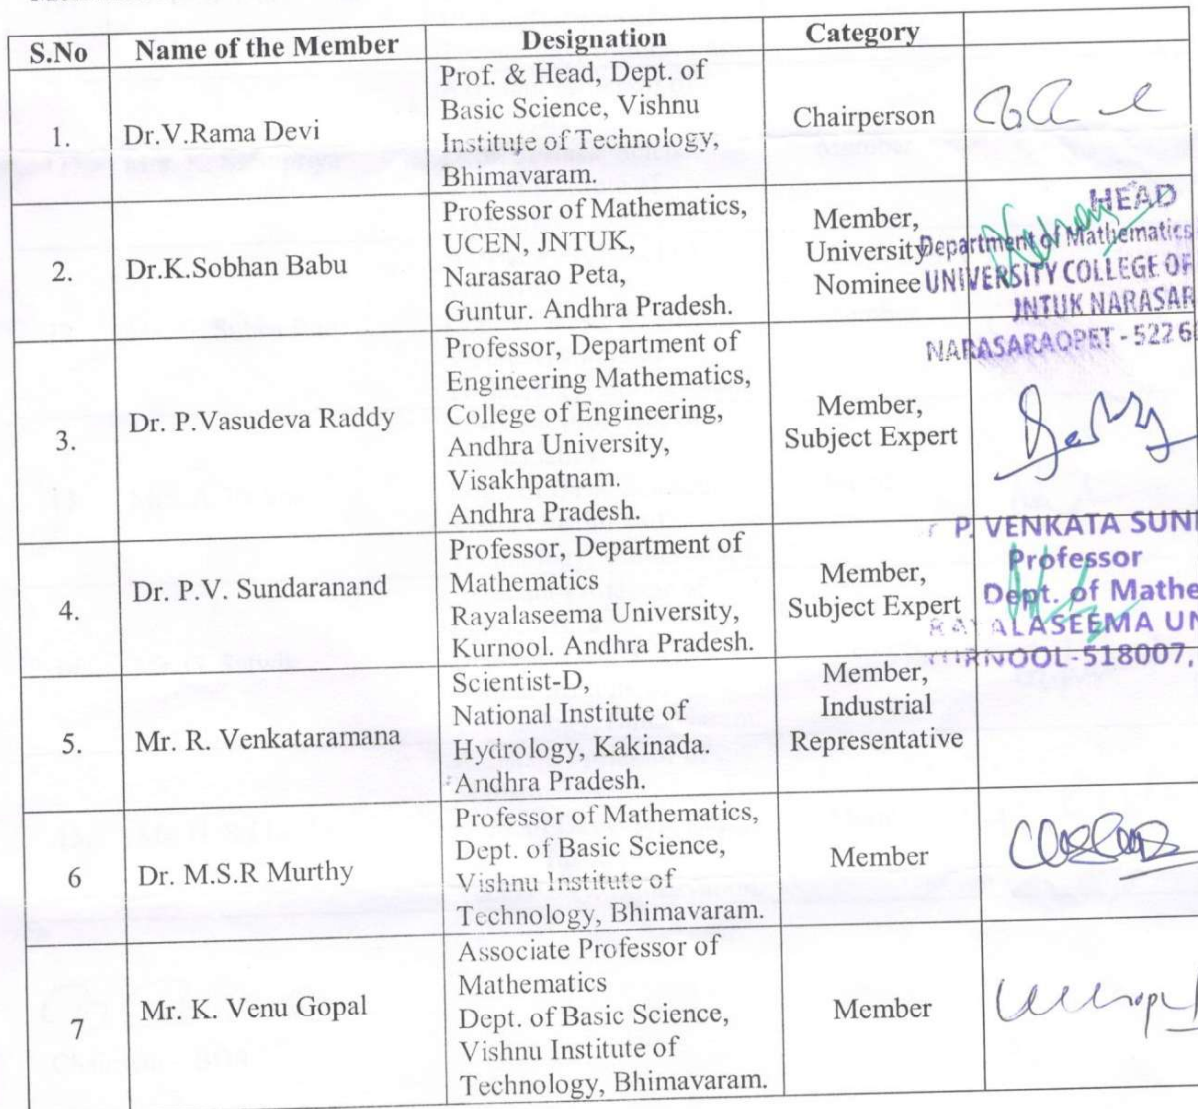 S.No Name of the Member Designation Category
1. Dr.V.Rama Devi
Prof. & Head, Dept. of
Basic Science, Vishnu
Institute of Technology,
Bhimavaram.
Chairperson
2. Dr.K.Sobhan Babu
Professor of Mathematics,
UCEN, JNTUK,
Narasarao Peta,
Guntur. Andhra Pradesh.
Member,
University
Nominee
HEAD
Department of Mathematics
UNIVERSITY COLLEGE OF
JNTUK NARASAR
NARASARAOPET - 522 6
3. Dr. P.Vasudeva Raddy
Professor, Department of
Engineering Mathematics,
College of Engineering,
Andhra University,
Visakhpatnam.
Andhra Pradesh.
Member,
Subject Expert
4. Dr. P.V. Sundaranand
Professor, Department of
Mathematics
Rayalaseema University,
Kurnool. Andhra Pradesh.
Member,
Subject Expert
P. VENKATA SUN
Professor
Dept. of Mathe
RAYALASEEMA UN
KURNOOL-518007,
5. Mr. R. Venkataramana
Scientist-D,
National Institute of
Hydrology, Kakinada.
Andhra Pradesh.
Member,
Industrial
Representative
6 Dr. M.S.R Murthy
Professor of Mathematics,
Dept. of Basic Science,
Vishnu Institute of
Technology, Bhimavaram.
Member
7 Mr. K. Venu Gopal
Associate Professor of
Mathematics
Dept. of Basic Science,
Vishnu Institute of
Technology, Bhimavaram.
Member